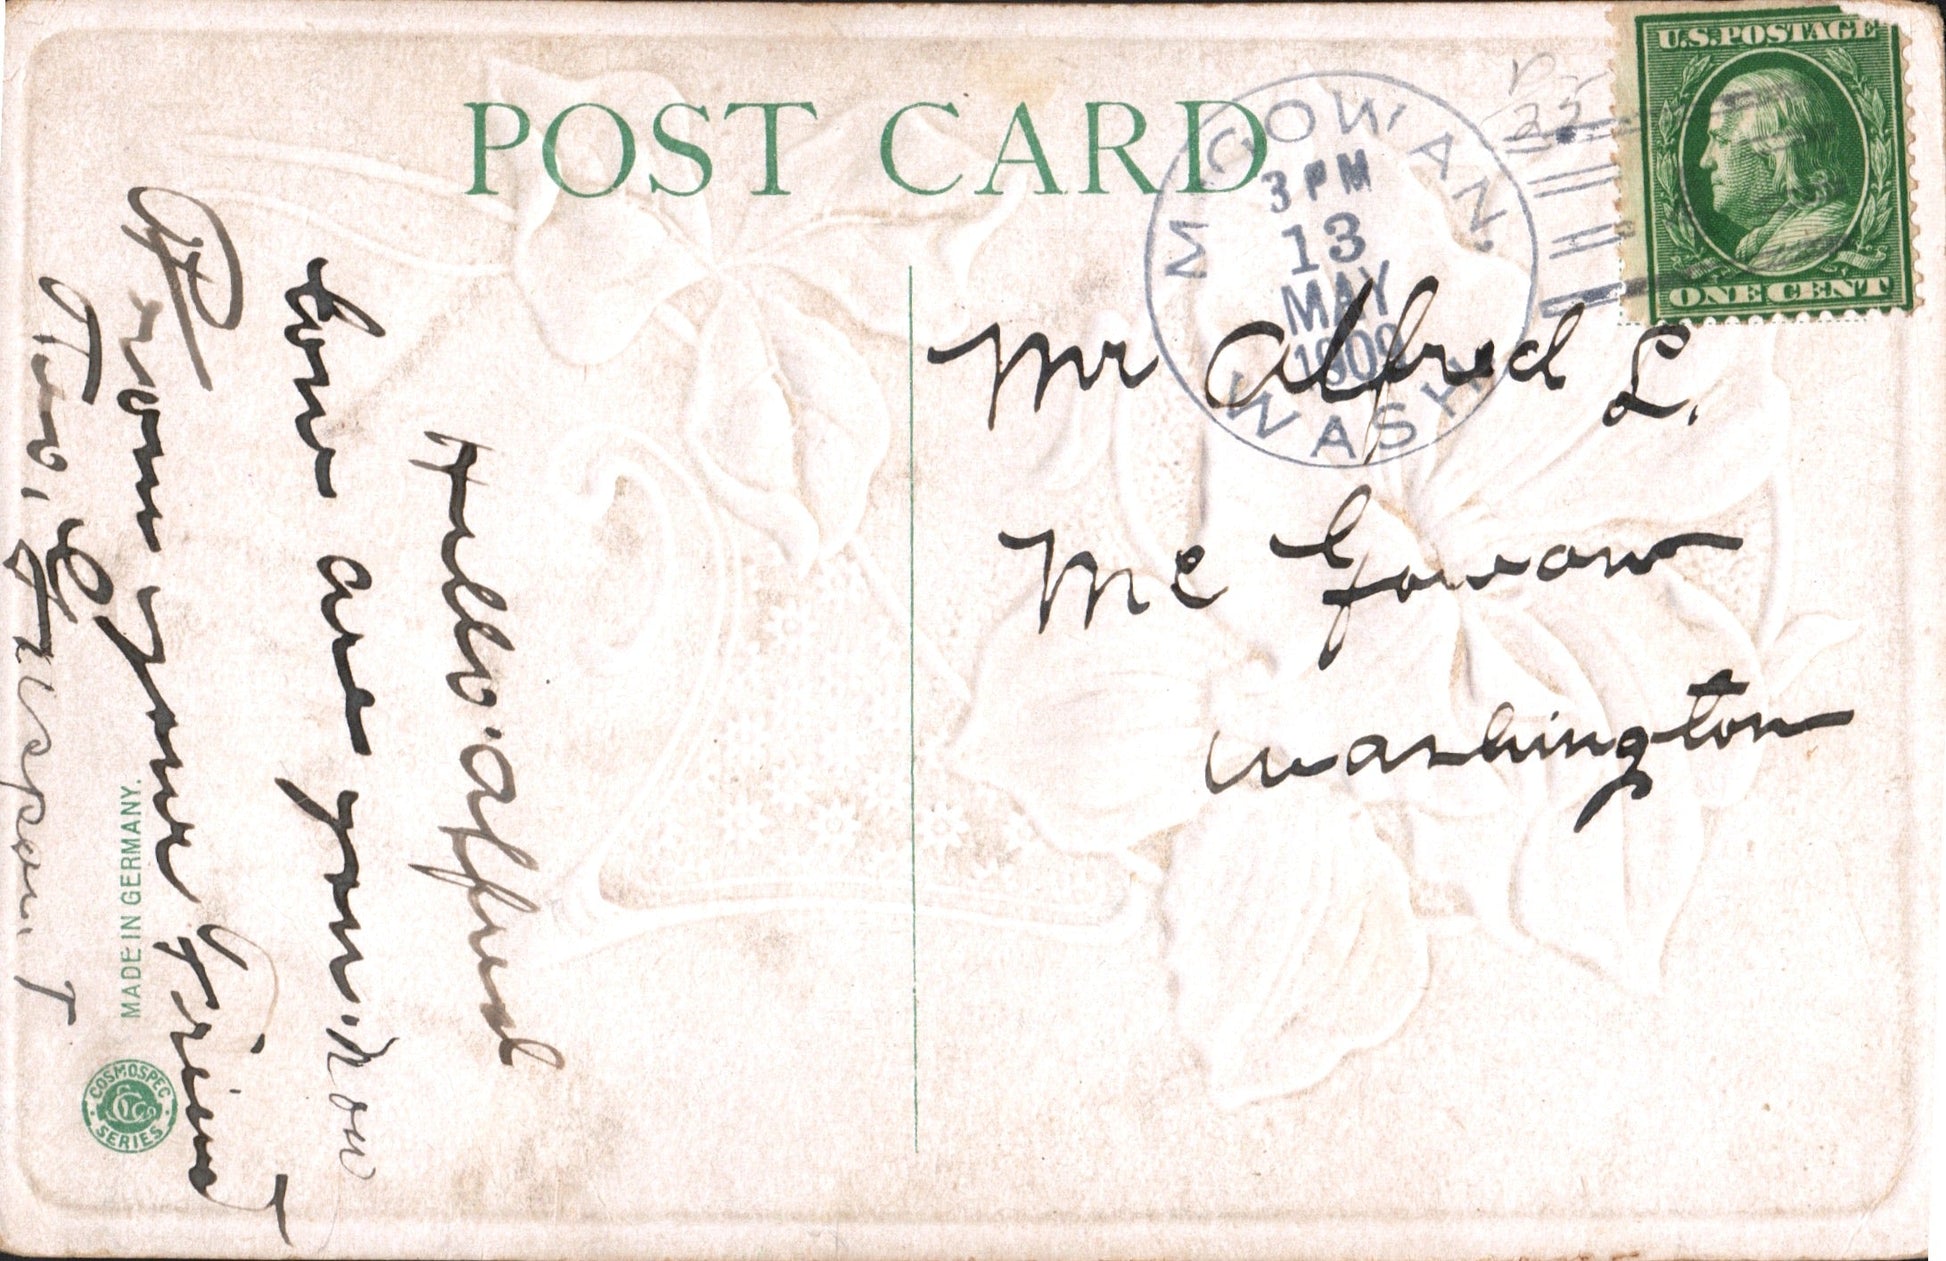 POST CARD
U.S. POSTAGE
ONE CENT
McGOWAN,
3 PM
13
MAY
1909
WASH
Mr Alfred L.
Mc Gowan
Washington
Hello. Alfred
how are you. now
From your Friend
MADE IN GERMANY.
COSMOSPEC
SERIES